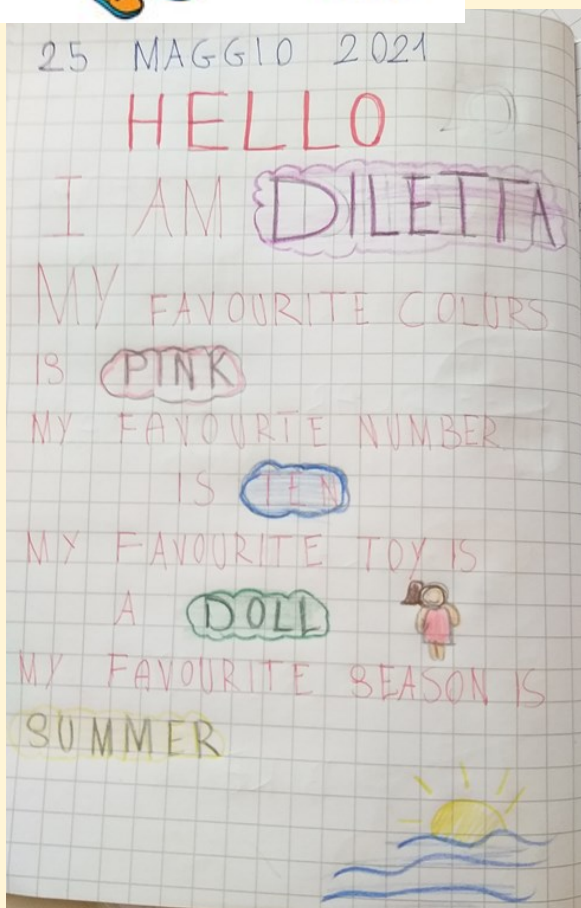 25 MAGGIO 2021
HELLO
I AM DILETTA
MY FAVOURITE COLURS
IS PINK
MY FAVOURTE NUMBER
IS TEN
MY FAVOURITE TOY IS
A DOLL
MY FAVOURITE SEASON IS
SUMMER